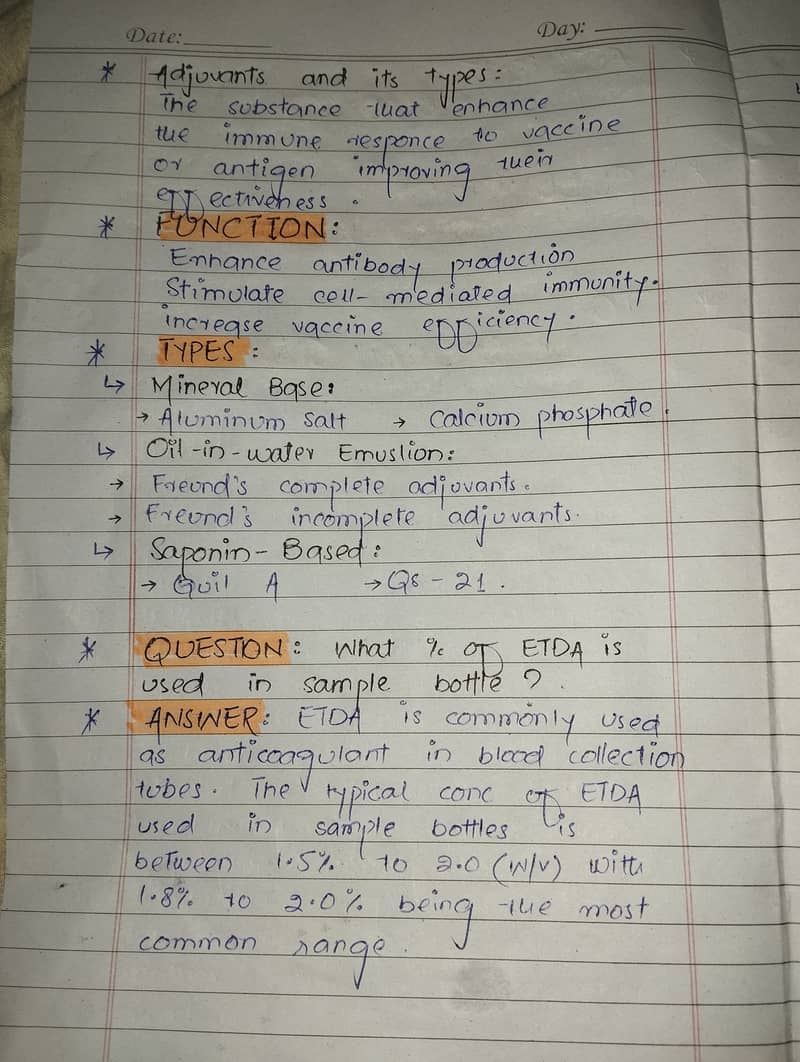 Date:
Day:
* Adjuvants and its types:
The substance that enhance
the immune responce to vaccine
or antigen improving their
effectiveness.
* FUNCTION:
Enhance antibody production
Stimulate cell-mediated immunity.
increase vaccine efficiency.
* TYPES:
↳ Mineral Base:
→ Aluminum Salt → Calcium phosphate.
↳ Oil-in-water Emuslion:
→ Freund's complete adjuvants.
→ Freund's incomplete adjuvants.
↳ Saponin-Based:
→ Quil A → Qs-21.
* QUESTION: What % of ETDA is
used in sample bottle?
* ANSWER: ETDA is commonly used
as anticoagulant in blood collection
tubes. The typical conc of ETDA
used in sample bottles is
between 1.5% to 2.0 (W/V) with
1.8% to 2.0% being the most
common range.